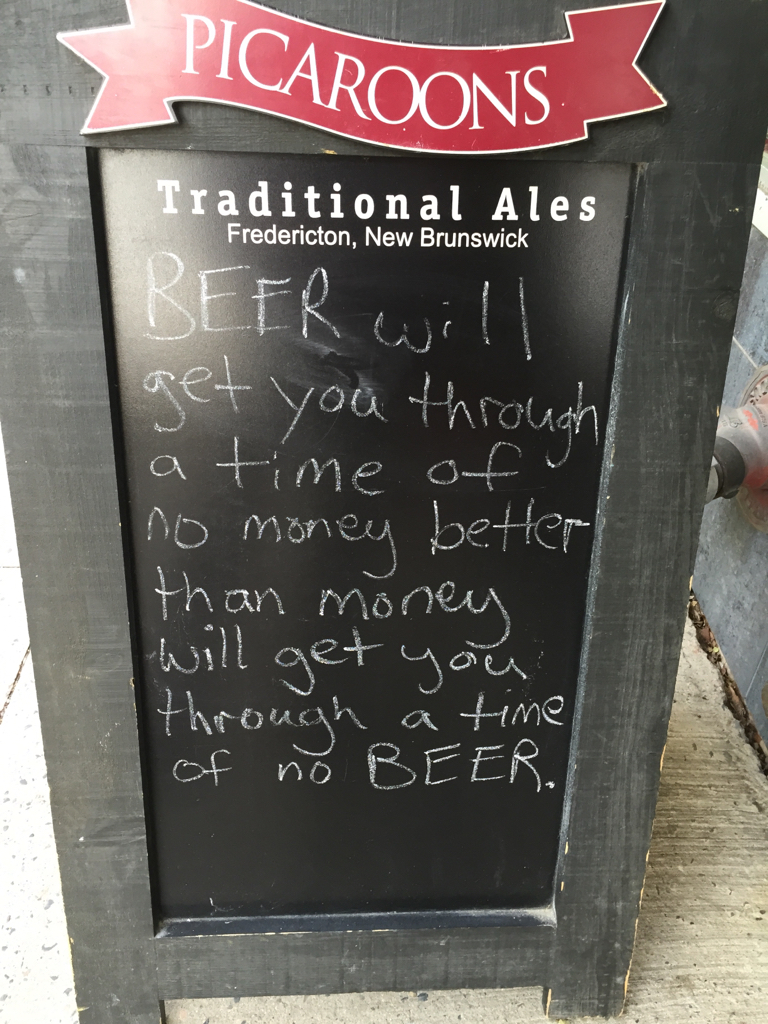 PICAROONS
Traditional Ales
Fredericton, New Brunswick
BEER will
get you through
a time of
no money better
than money
will get you
through a time
of no BEER.